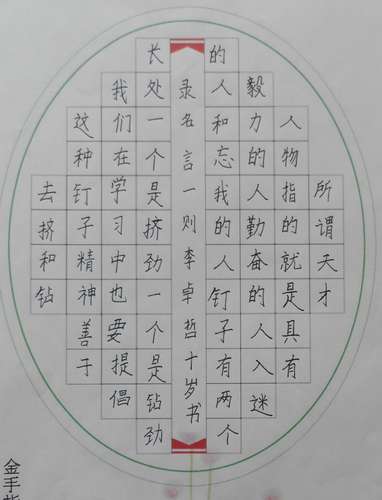 所谓天才
人物指的就是具有
毅力的人勤奋的人入迷
的人和忘我的人钉子有两个
录名言一则李卓哲十岁书
长处一个是挤劲一个是钻劲
我们在学习中也要提倡
这种钉子精神善于
去挤和钻
金手